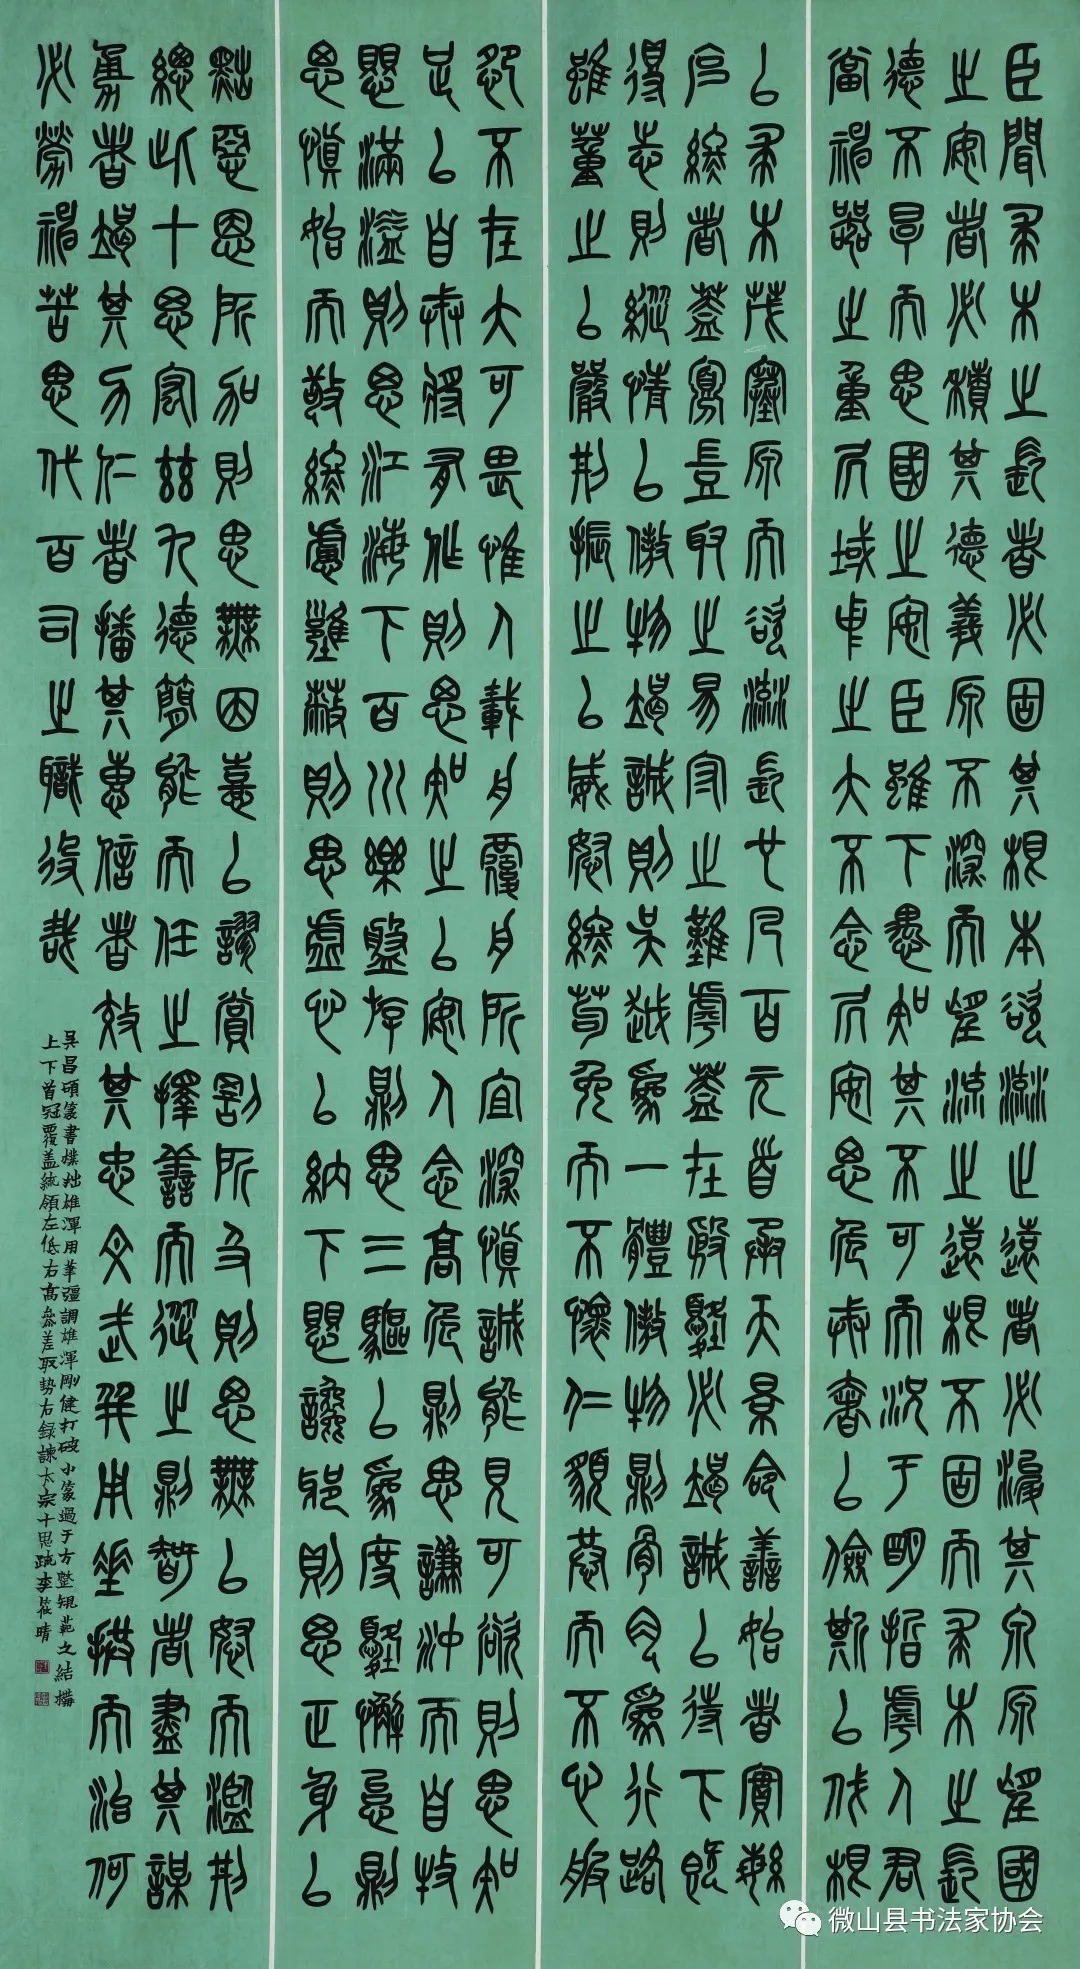 臣聞求木之長者必固其根本欲流之遠者必浚其泉源望國
之安者必積其德義源不深而望流之遠根不固而求木之長
德不厚而思國之安臣雖下愚知其不可而況于明哲虖人君
當神器之重居域中之大不念居安思危戒奢以儉斯以伐根
以求木茂塞源而欲流長也凡百元首承天景命善始者實繁
克終者蓋寡豈取之易守之難虖蓋在殷憂必竭誠以待下既
得志則縱情以傲物竭誠則吳越為一體傲物則骨肉為行路
雖董之以嚴刑振之以威怒終苟免而不懷仁貌恭而不心服
怨不在大可畏惟人載舟覆舟所宜深慎誠能見可欲則思知
足以自戒將有作則思知止以安人念高危則思謙沖而自牧
懼滿溢則思江海下百川樂盤游則思三驅以為度憂懈怠則
思慎始而敬終慮壅蔽則思虛心以納下懼讒邪則思正身以
黜惡恩所加則思無因喜以謬賞罰所及則思無以怒而濫刑
總此十思宏茲九德簡能而任之擇善而從之則智者盡其謀
勇者竭其力仁者播其惠信者效其忠文武并用垂拱而治何
必勞神苦思代百司之職役哉
吳昌碩篆書樸拙雄渾用筆彊調雄渾剛健打破小篆過于方整規範之結構
上下首冠覆盖統領左低右高參差取勢右録諫太宗十思疏李筱晴
微山县书法家协会